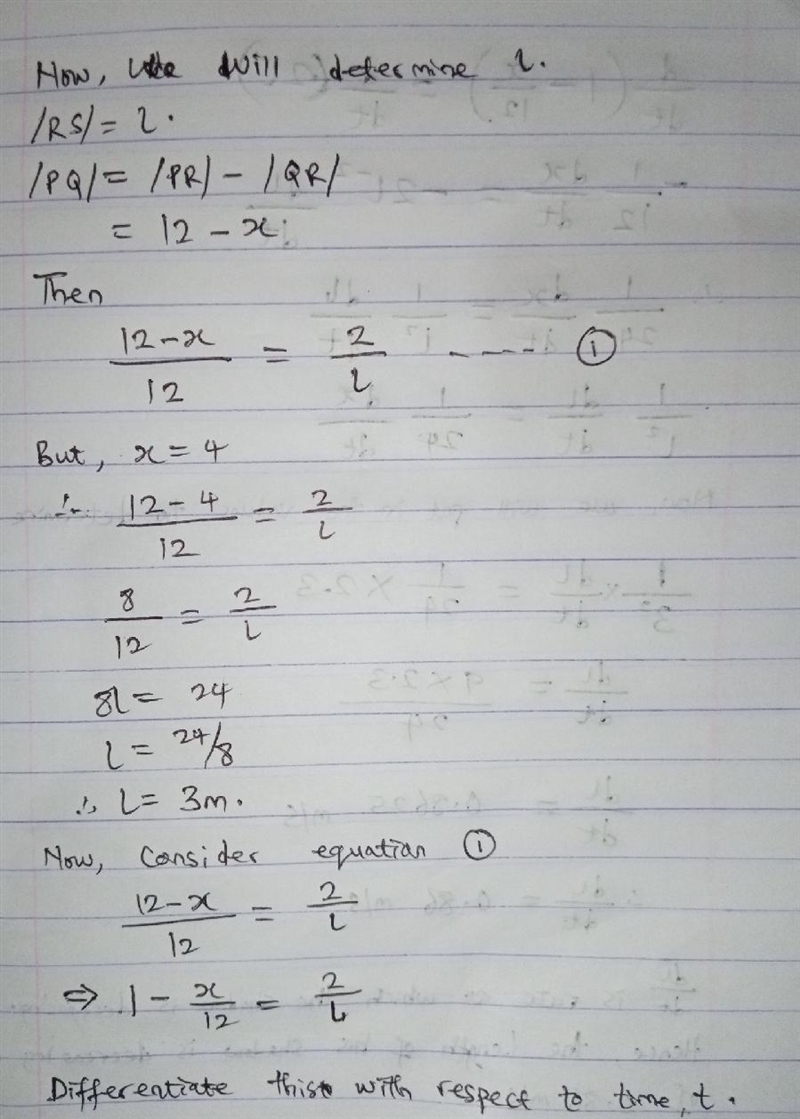 Now, We will determine l.
/RS/ = l.
/PQ/ = /PR/ - /QR/
= 12 - x
Then
12-x / 12 = 2 / l ---- ①
But, x = 4
∴ 12-4 / 12 = 2 / l
8 / 12 = 2 / l
8l = 24
l = 24/8
∴ l = 3m.
Now, Consider equation ①
12-x / 12 = 2 / l
⇒ 1 - x/12 = 2 / l
Differentiate this with respect to time, t.